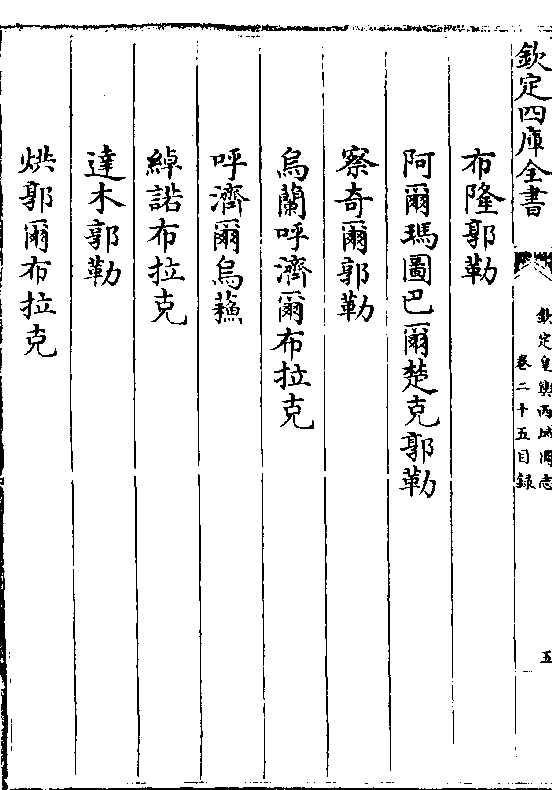 欽定四庫全書
欽定皇輿西域圖志
卷二十五目録
五
布隆郭勒
阿爾瑪圖巴爾楚克郭勒
察奇爾郭勒
烏蘭呼濟爾布拉克
呼濟爾烏蘓
綽諾布拉克
達木郭勒
烘郭爾布拉克